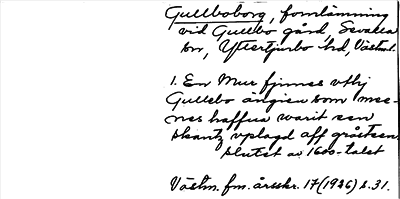 Gullboborg, fornlämning
vid Gullbo gård, Sevalla
sn, Yttertjurbo hd, Västml.
1. En Mur finnes vthj
Gullebo ängien som me-
nes haffua warit een
skantz vplagd aff gråsteen.
slutet av 1600-talet
Västm. fm. årsskr. 17 (1926) s. 31.